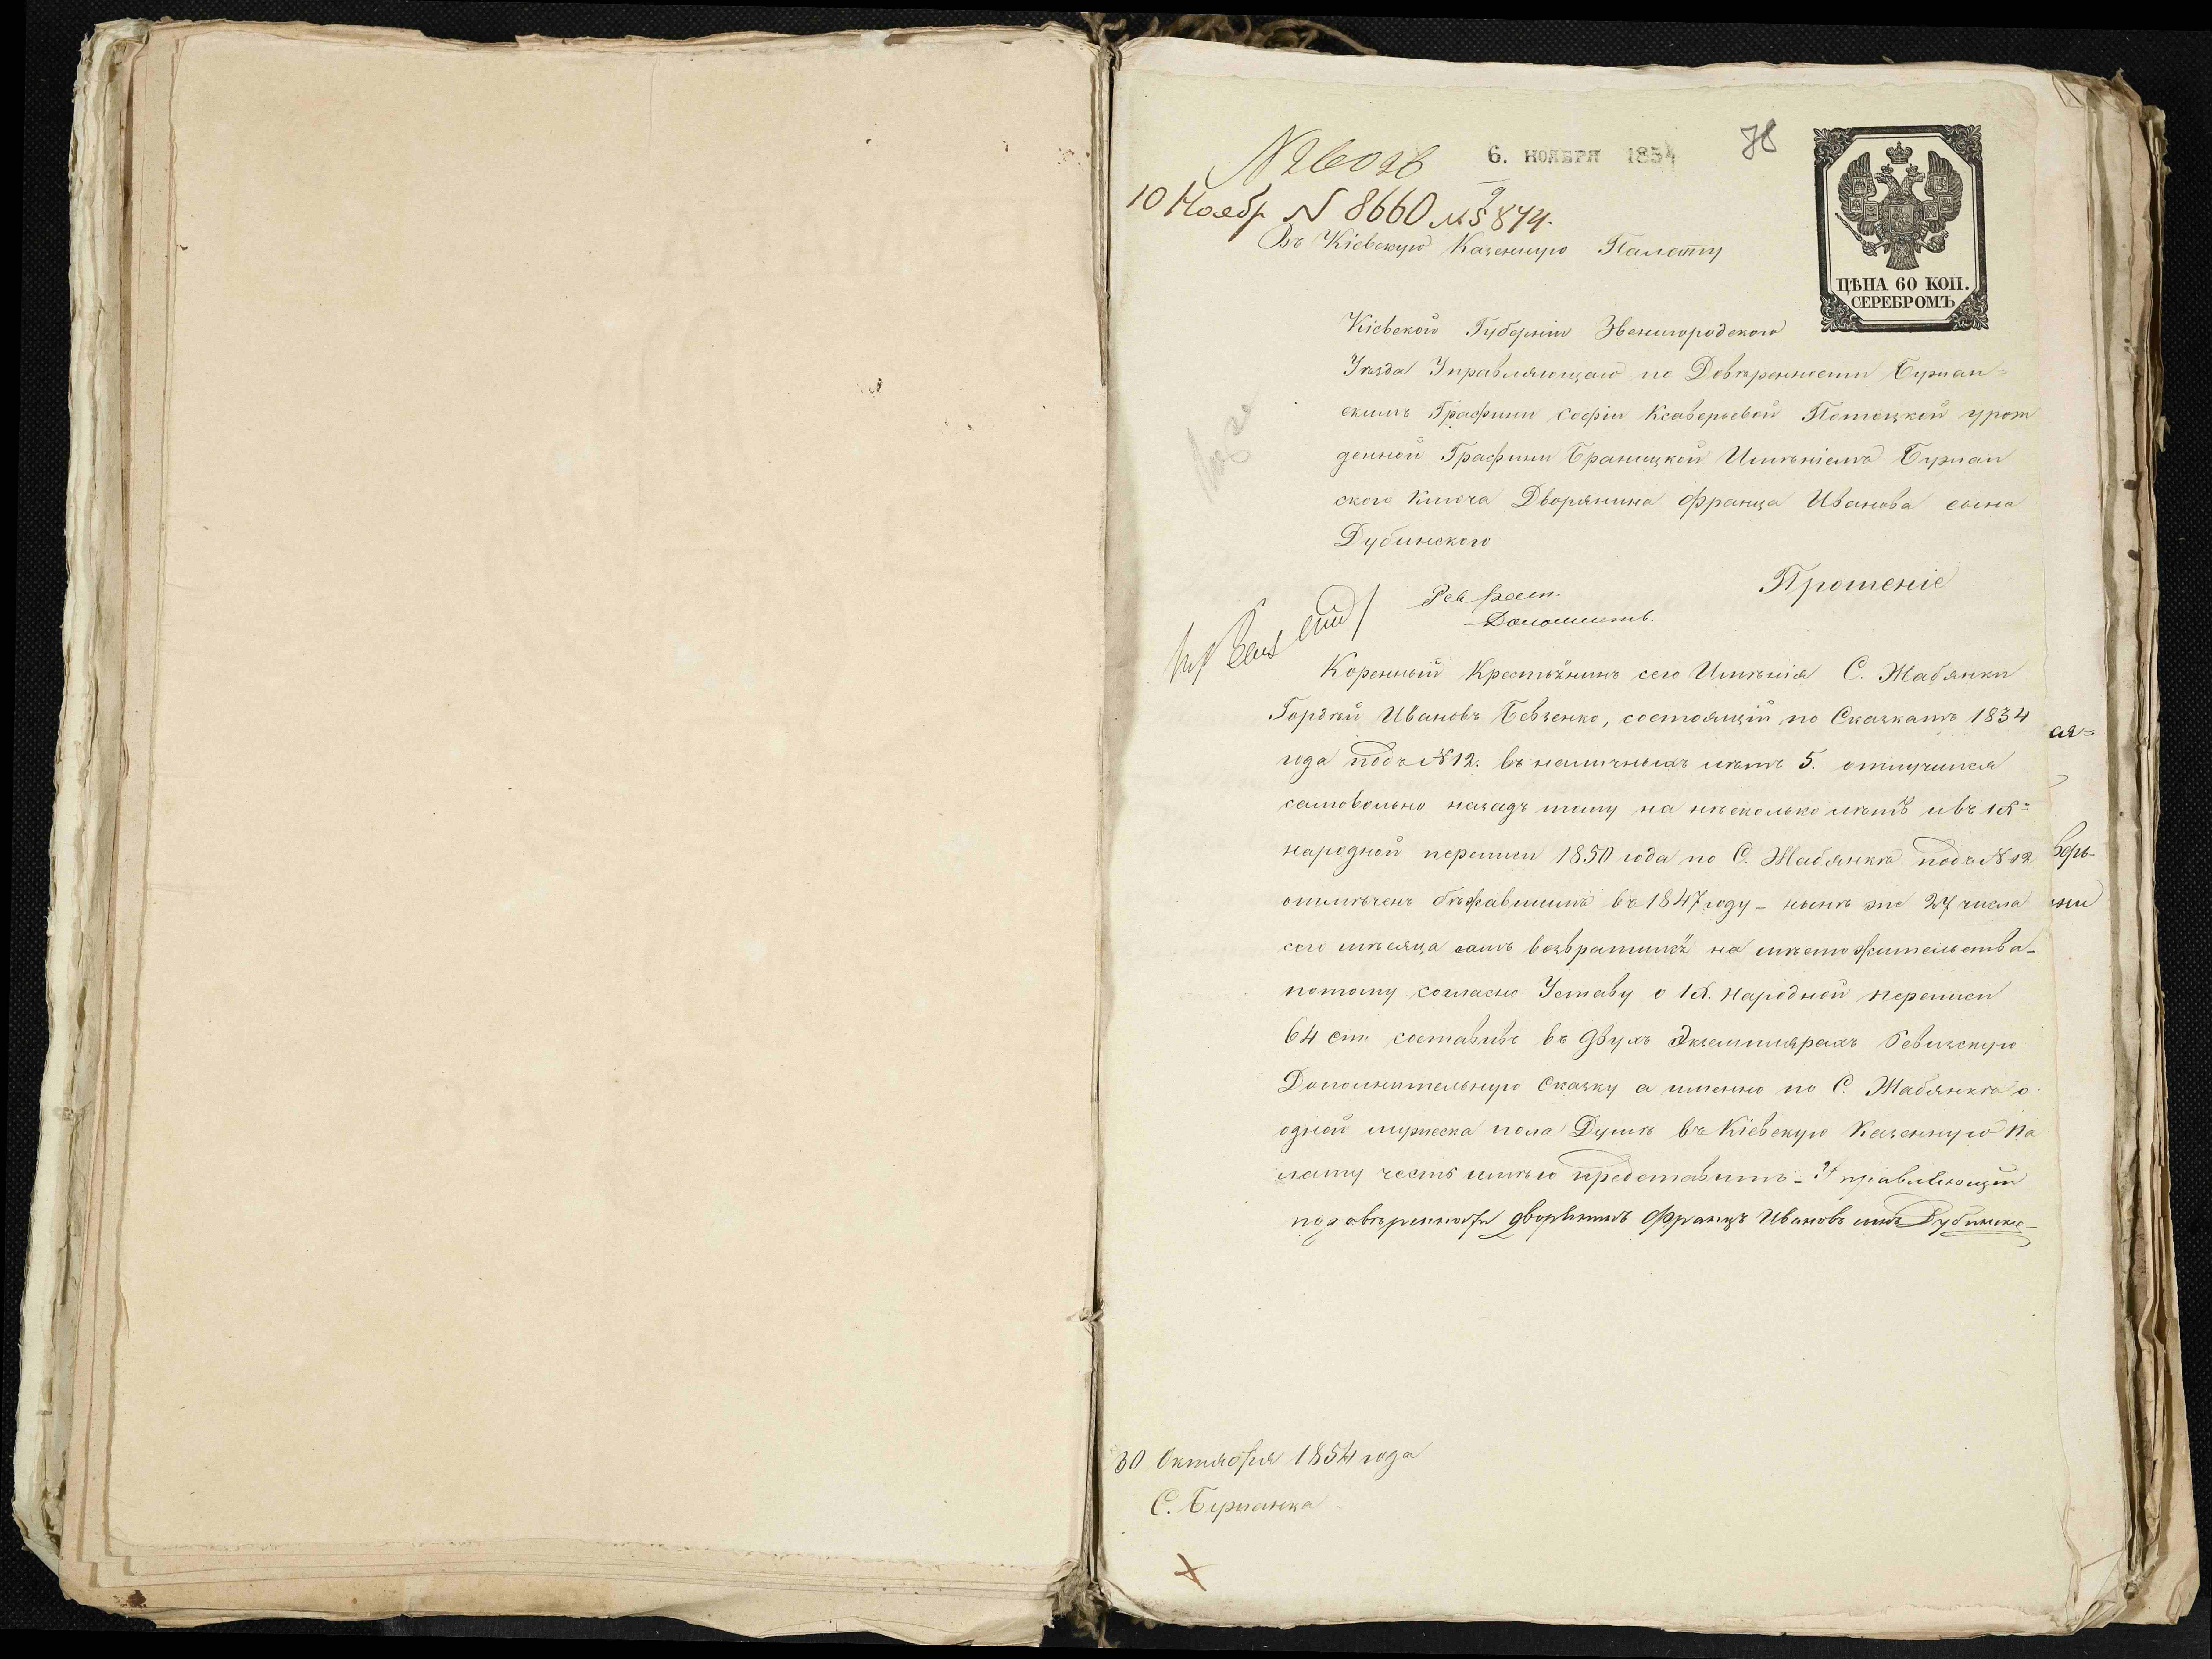 6. НОЯБРЯ 1854
78
10 Ноябр N 8660
ЦѢНА 60 КОП.
СЕРЕБРОМЪ
Въ Кіевскую Казенную Палату
Кіевской Губерніи Звенигородского
Уѣзда Управляющаго по Довѣренности
Графини Софіи Ксаверьевой Потоцкой урож
денной Графини Браницкой Имѣніемъ
ского Ключа Дворянина Франца Иванова сына
Дубинского
Прошеніе
Коренный Крестьянинъ сего Имѣнія С. Жабянки
Гордѣй Ивановъ Бевзенко, состоящій по Сказкамъ 1834
года подъ N 12. въ наличныхъ лѣтъ 5. отлучился
самовольно назадъ тому на нѣсколько лѣтъ и въ IX=
народной переписи 1850 года по С. Жабянкѣ подъ N 12
отмѣченъ бѣжавшимъ въ 1847 году – нынѣ же 27 числа
сего мѣсяца самъ возвратился на мѣсто жительства –
потому согласно Уставу о IX. народной переписи
64 ст. составивъ въ двухъ Экземплярахъ Ревизскую
Дополнительную Сказку а именно по С. Жабянкѣ о
одной мужеска пола Душѣ въ Кіевскую Казенную Па
лату честь имѣю представить – Управляющій
по довѣренности дворянинъ Францъ Ивановъ сынъ Дубински
ая=
верь-
30 Октября 1854 года